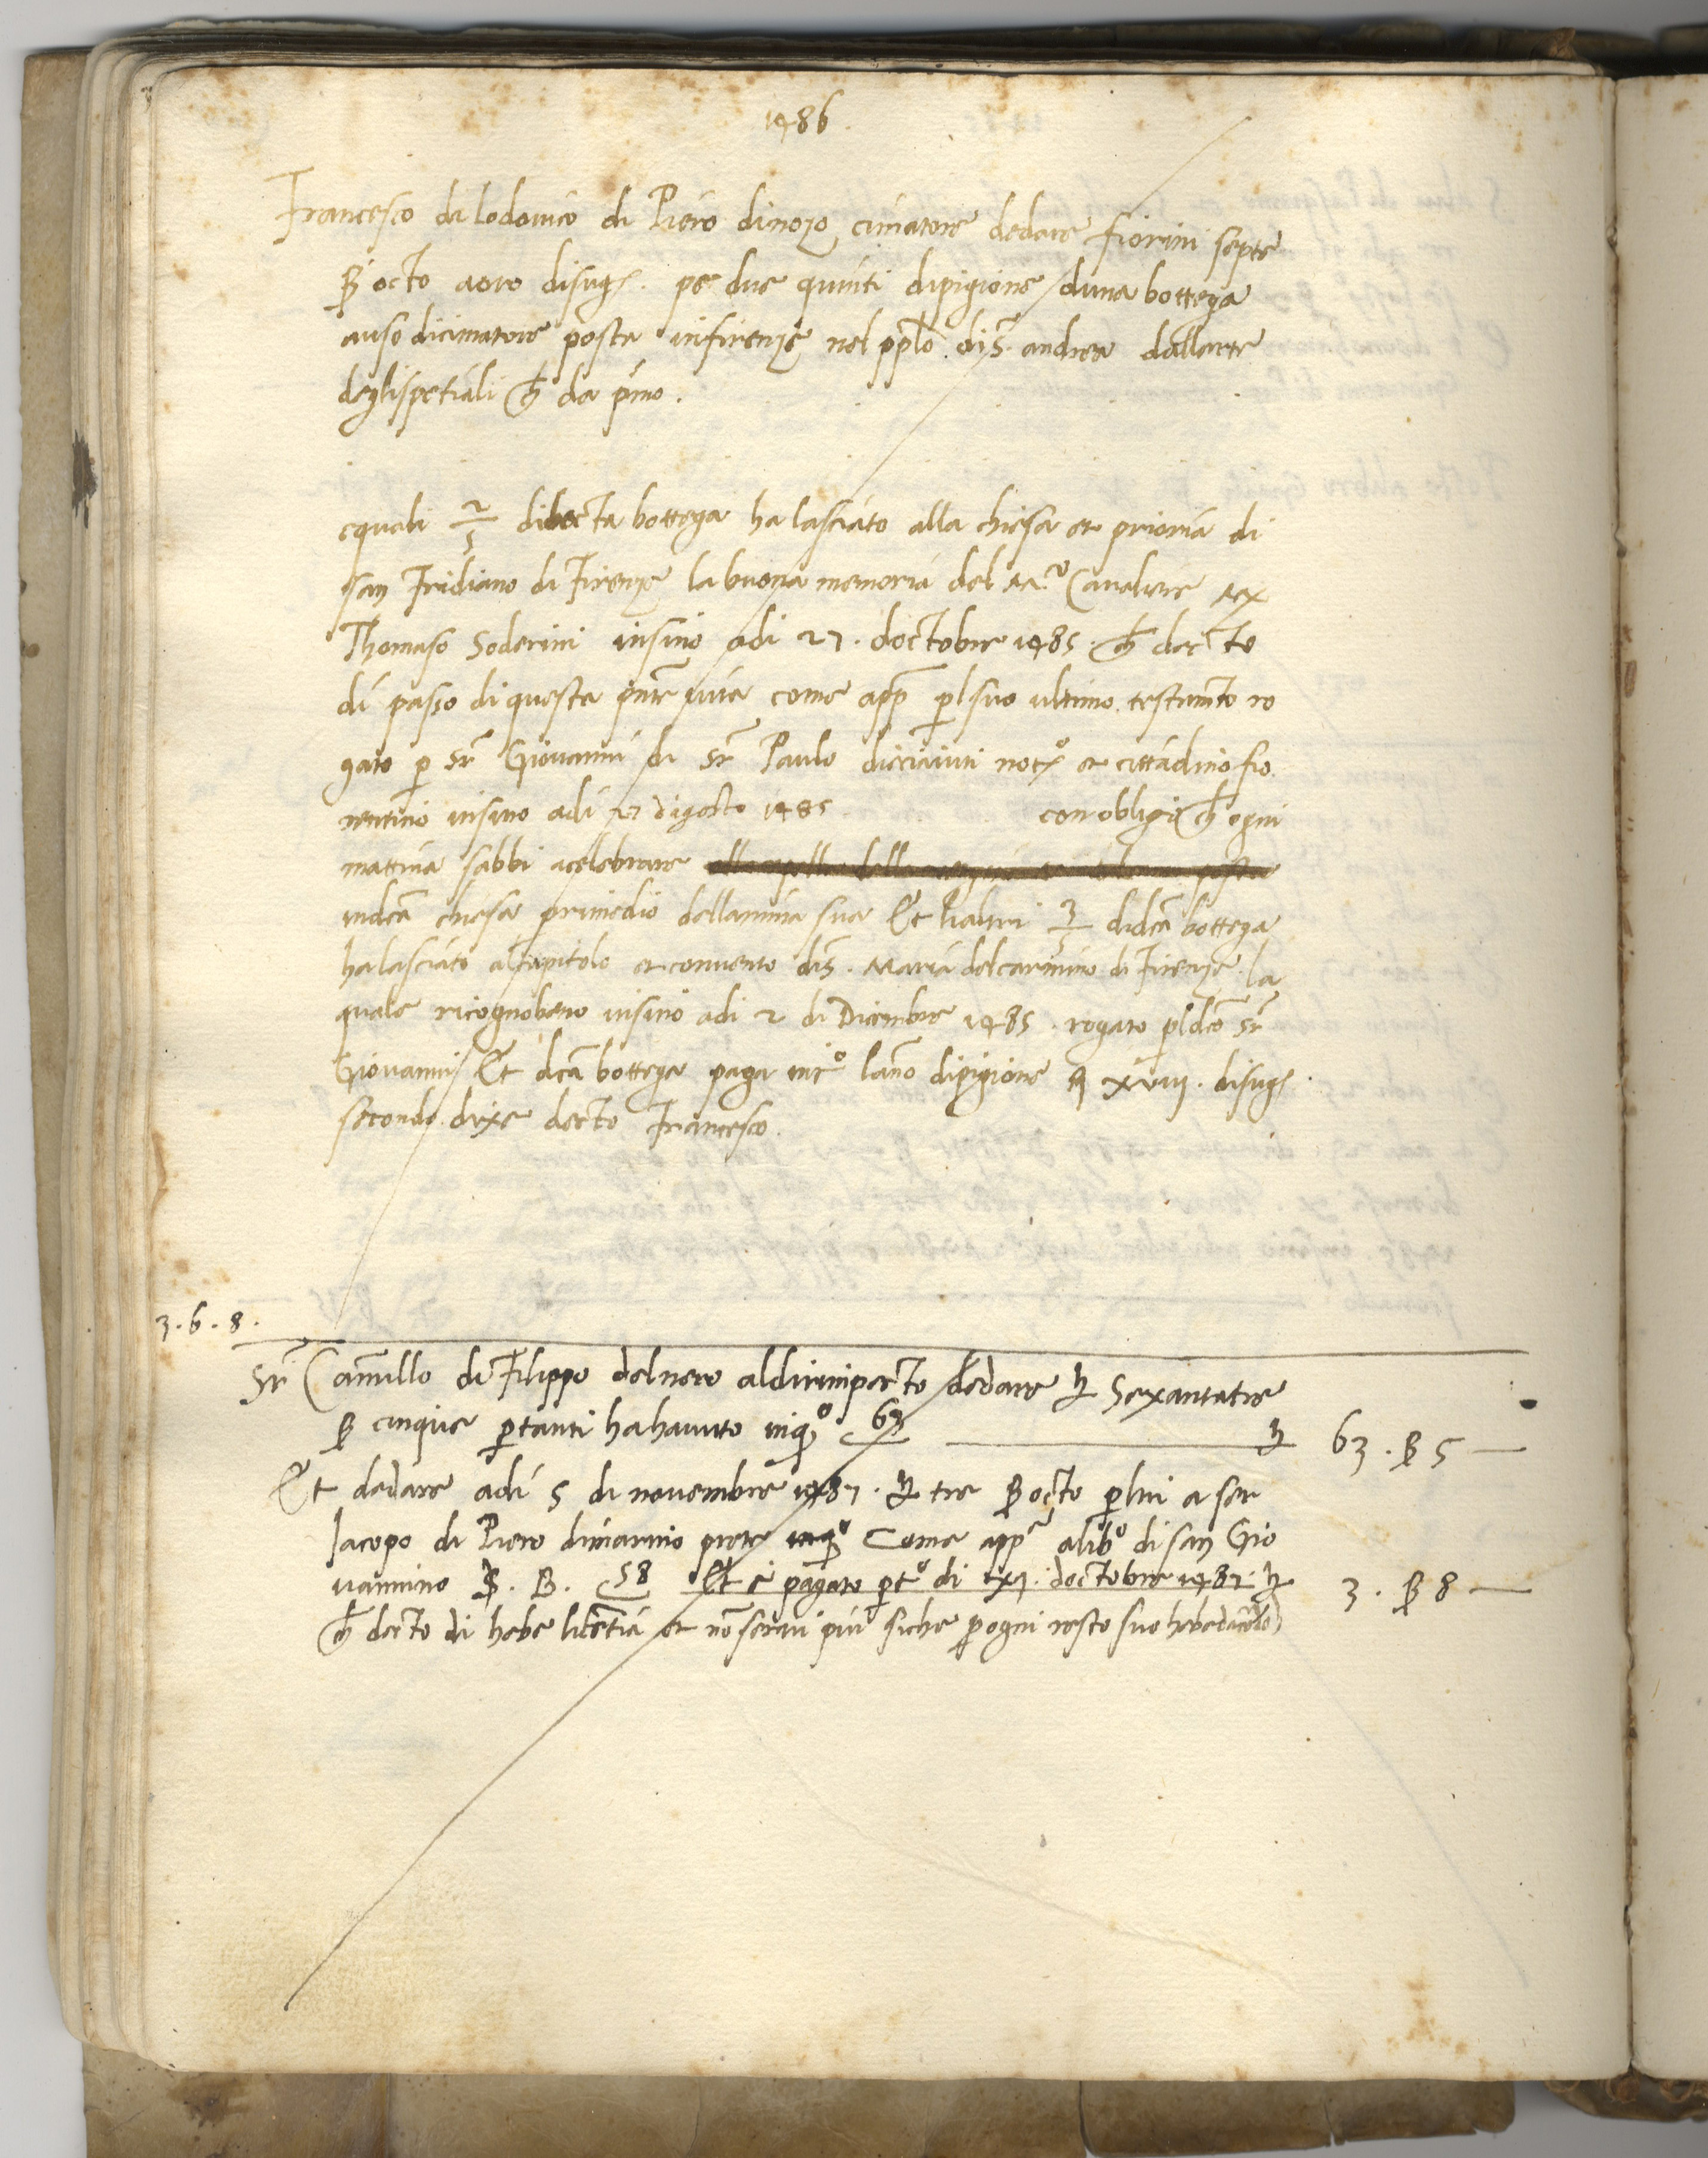 1486
Francesco di lodovico di Piero dinozo cimatore dedare fiorini septe
ß octo doro disugl. pe due quinti dipigione duna bottega
auso dicimatore posta infirenze nel pplo di S. andrea dallarte
deglispetiali ch da pmo.
equali 2/5 didecta bottega ha lasciato alla chiesa et prioria di
san Fridiano di Firenze la buona memoria del Mco Cavaliere Mex
Thomaso Soderini insino adi 27. doctobre 1485. ch decto
di passo di questa pnte vita come app pl suo ultimo testamto ro
gato p Sr Giovanni di Sr Paulo notxo et cittadino fio
rentino insino adi 27 digosto 1485 con obligo ch ogni
mattina sabbi acelebrare
indca chiesa primedio dellanima sua Et lialtri 3/5 didca bottega
ha lasciato alcapitolo et convento di S. Maria delcarmino di Firenze la
quale ricognobero insino adi 2 di Dicembre 1485. rogato pldco Sr
Giovanni Et dca bottega paga lano dipigione xviii. disugl.
secondo dixe decto Francesco.
3.6.8.
Sr Camillo di Filippo delnero aldirimpecto dedare Sexantatre
ß cinque ptanti hahauuto inqo 63 63. ß 5
Et dedare adi 5 di novembre 1487. tre ß octo plui a ser
Iacopo di Piero dimarino prete Come appe alibo di san Gio
vannino S. B. 58 Et è pagato pto di doctobre 1487. 3. ß 8
ch decto di hebe licentia et no servi piu siche p ogni resto suo hebe